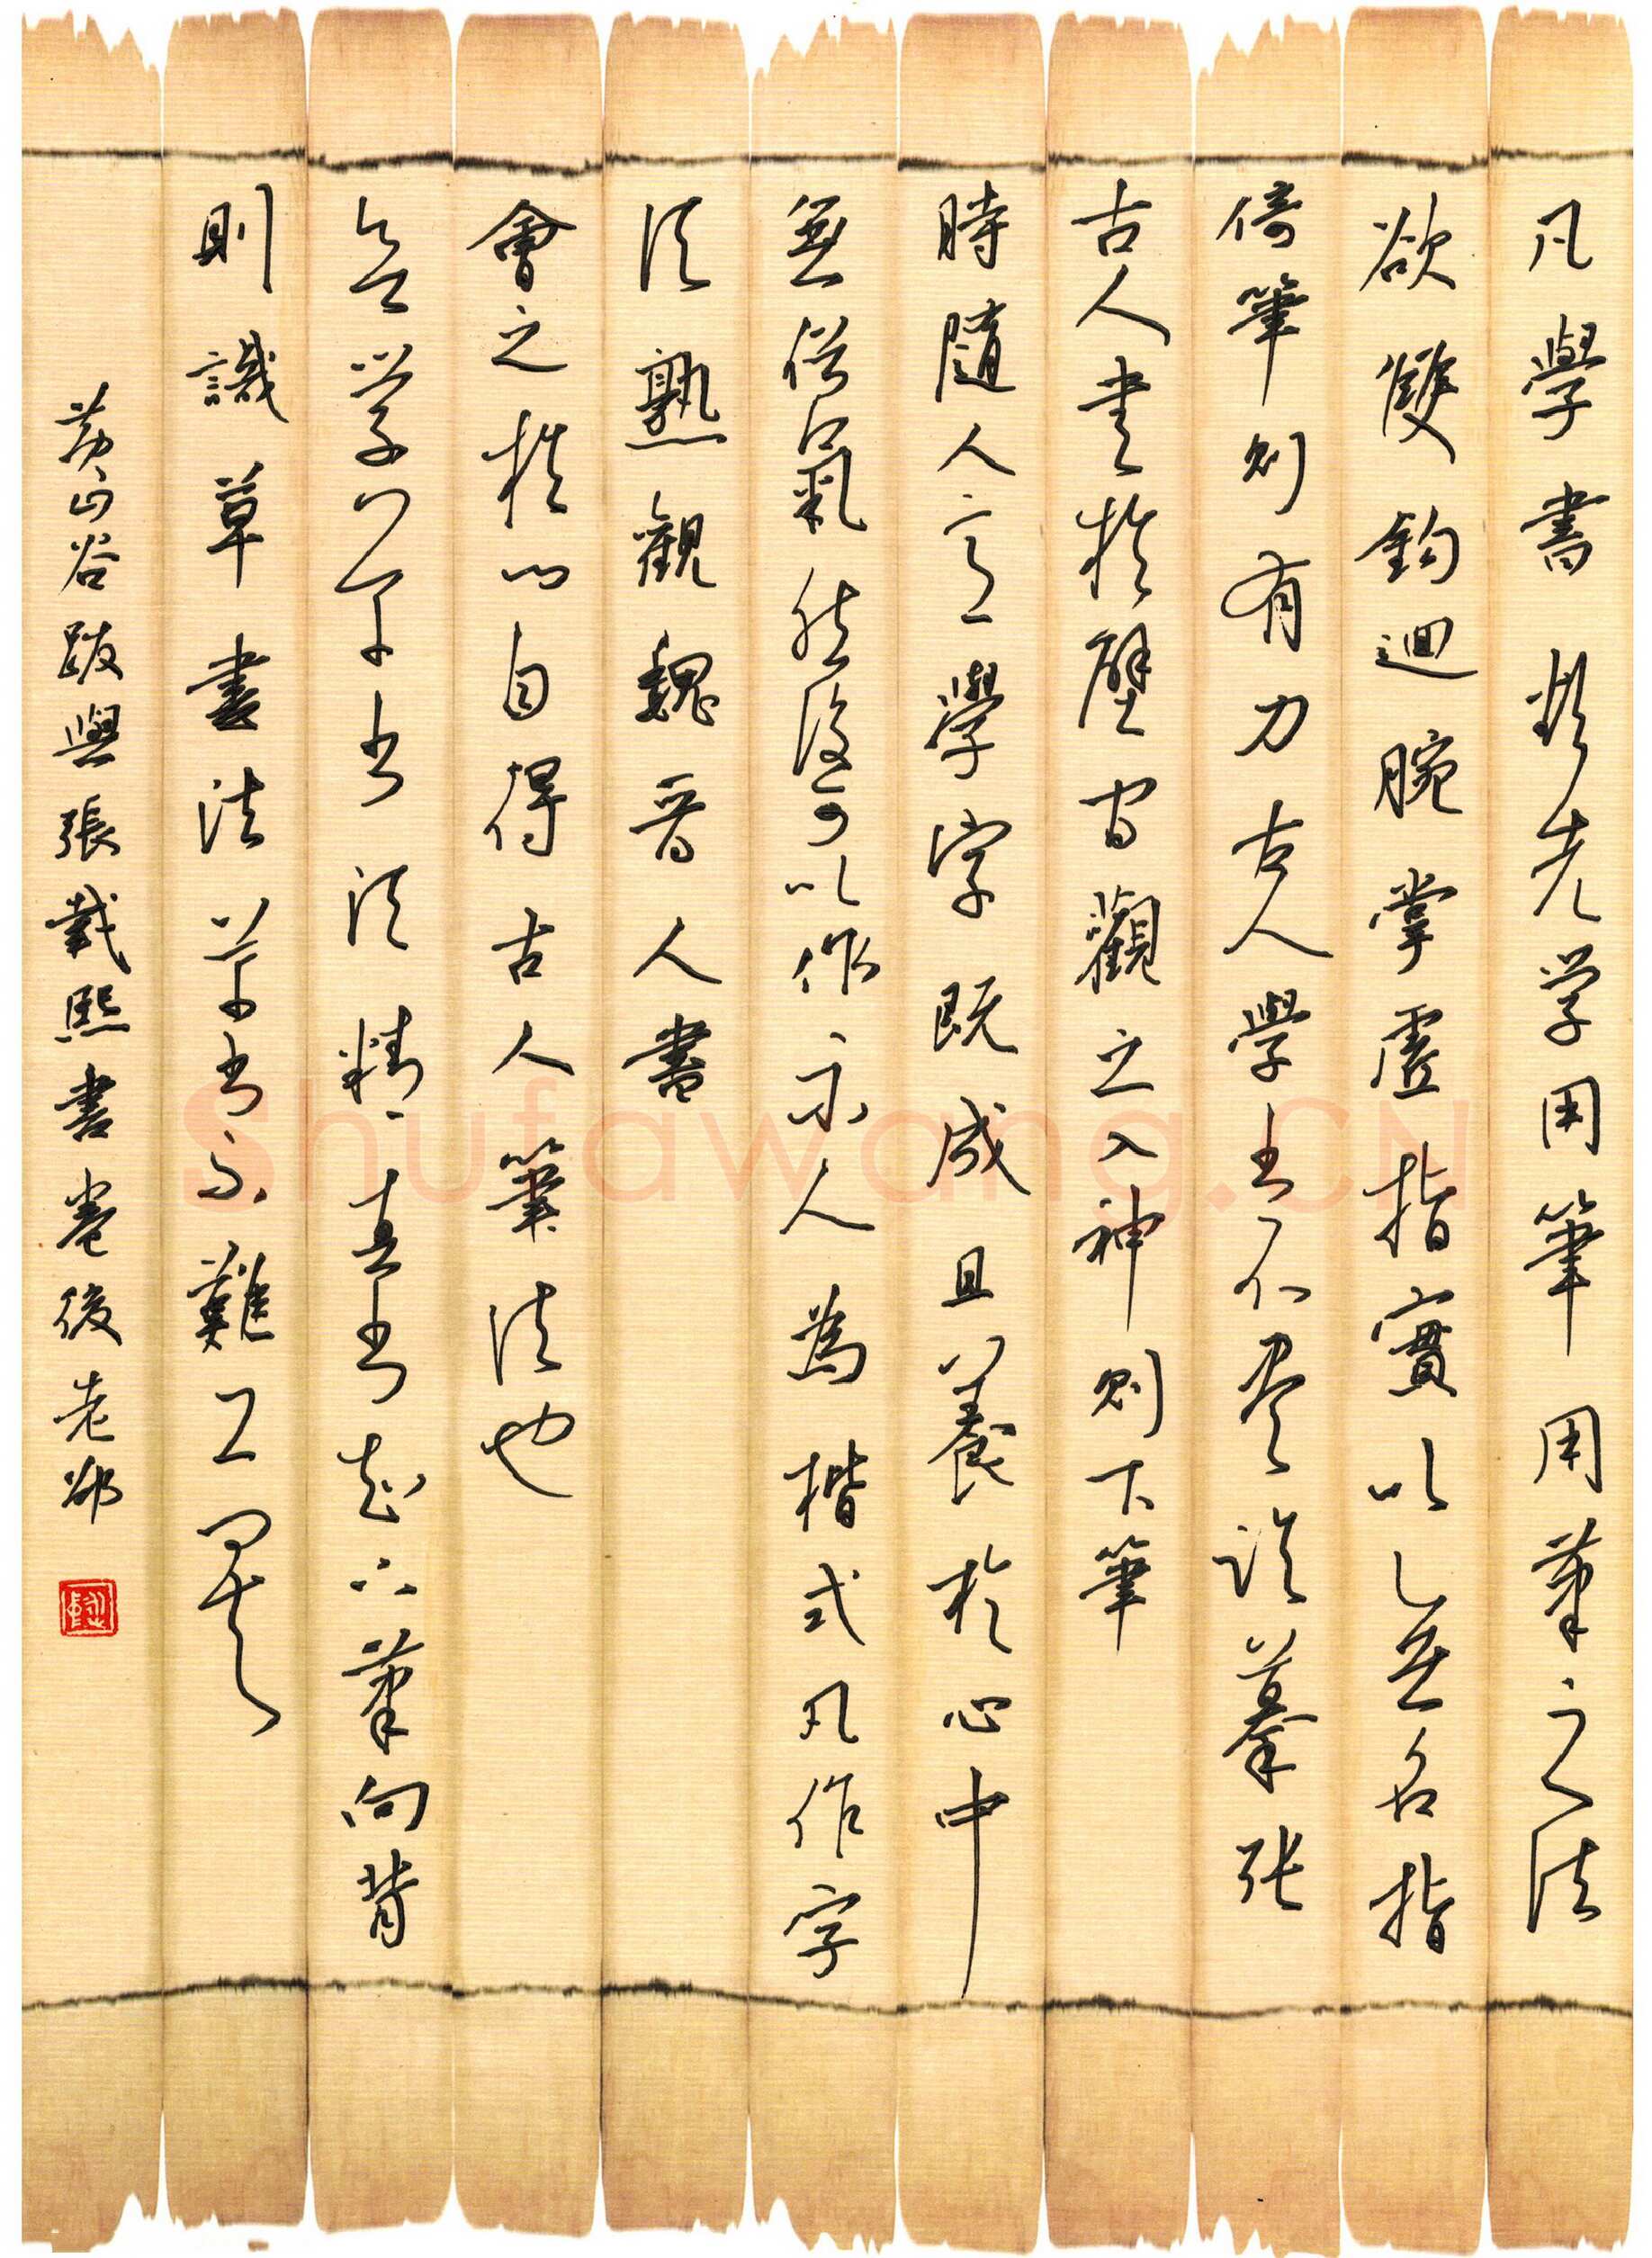 凡學書欲先学用筆用筆之法
欲雙鉤迴腕掌虛指實以無名指
倚筆則有力古人學书不尽临摹张
古人書於壁间觀之入神則下筆
時隨人意學字既成且養於心中
無俗氣然後可以作示人為楷式凡作字
须熟觀魏晋人書
會之於心自得古人筆法也
欲学草书须精真书知下筆向背
則識草書法草书不難工矣
黄山谷跋與張載熙書卷後老邓
Shufawang.CN